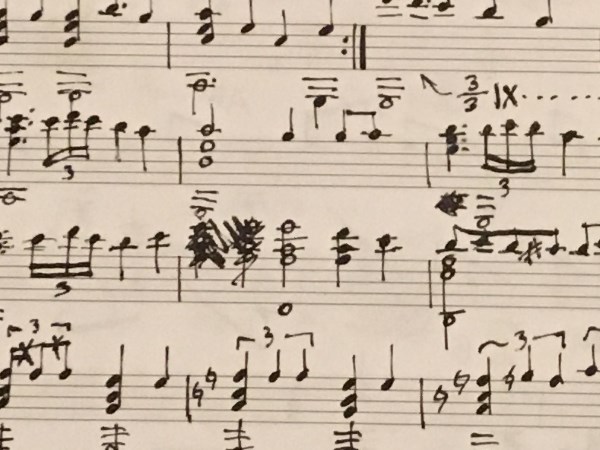 3/3 IX......
3 3
3
3 3 3